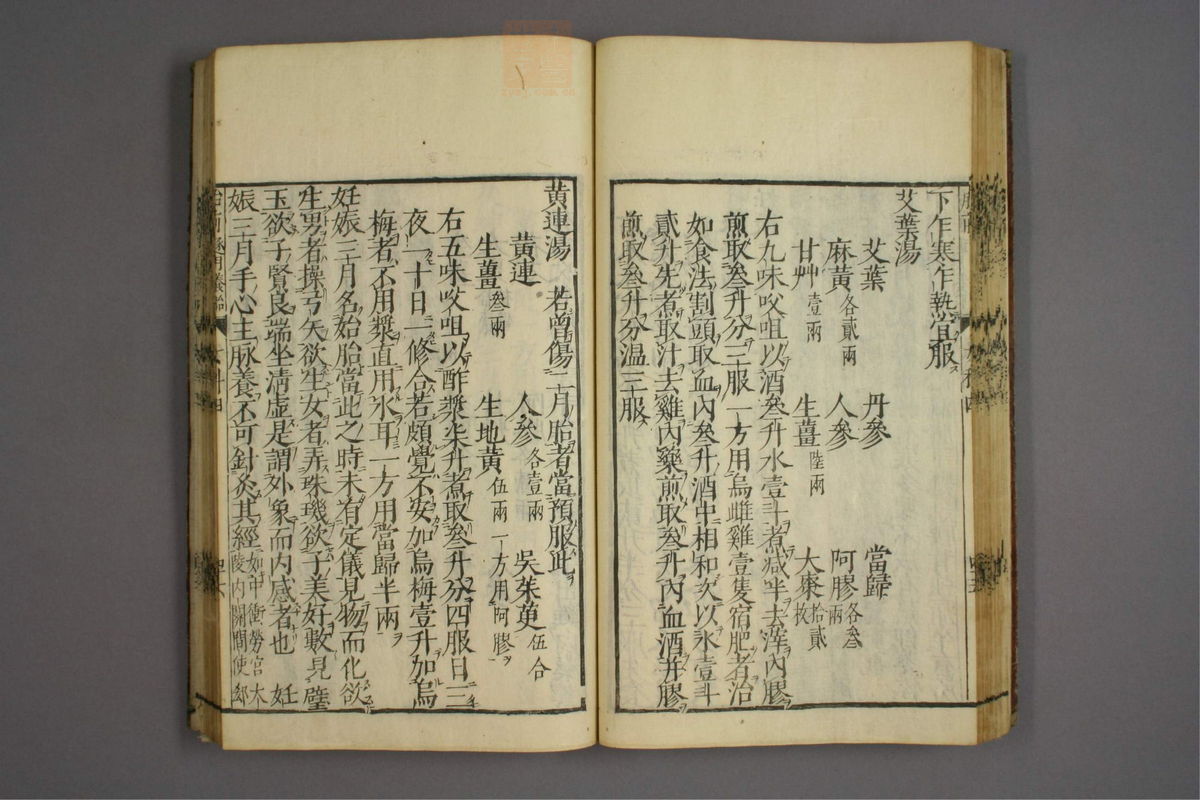 下乍寒乍熱宜服
艾葉湯
艾葉 丹參 當歸
麻黃各貳兩 人參 阿膠各叁兩
甘艸壹兩 生薑陸兩 大棗拾貳枚
右九味㕮咀以酒叁升水壹斗煮減半去滓內膠
煎取叁升分三服一方用烏雌雞壹隻宿肥者治
如食法割頭取血內叁升酒中相和次以水壹斗
貳升先煮取汁去雞內藥煎取叁升內血酒并膠
煎取叁升分温三服
黃連湯 若曾傷二月胎者當預服此
黃連 人參各壹兩 吳茱萸伍合
生薑叁兩 生地黃伍兩一方用阿膠
右五味㕮咀以酢漿柒升煮取叁升分四服日三
夜一十日一修合若頗覺不安加烏梅壹升加烏
梅者不用漿直用水耳一方用當歸半兩
妊娠三月名始胎當此之時未有定儀見物而化欲
生男者操弓矢欲生女者弄珠璣欲子美好數見璧
玉欲子賢良端坐清虛是謂外象而內感者也 妊
娠三月手心主脉養不可針灸其經如中衝勞宮大陵內關間使郄